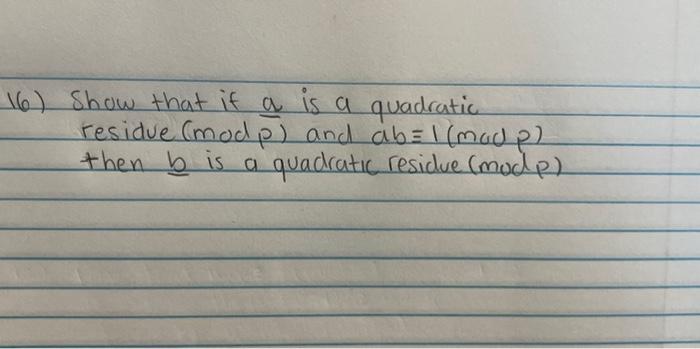 16) Show that if a is a quadratic
residue (mod p) and ab ≡ 1 (mod p)
then b is a quadratic residue (mod p)